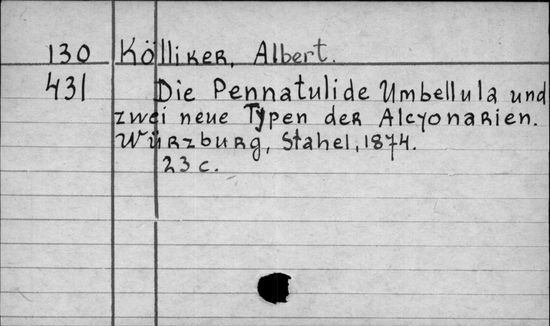 130 Kölliker, Albert.
431 Die Pennatulide Umbellula und
zwei neue Typen der Alcyonarien.
Würzburg, Stahel, 1874.
23 c.